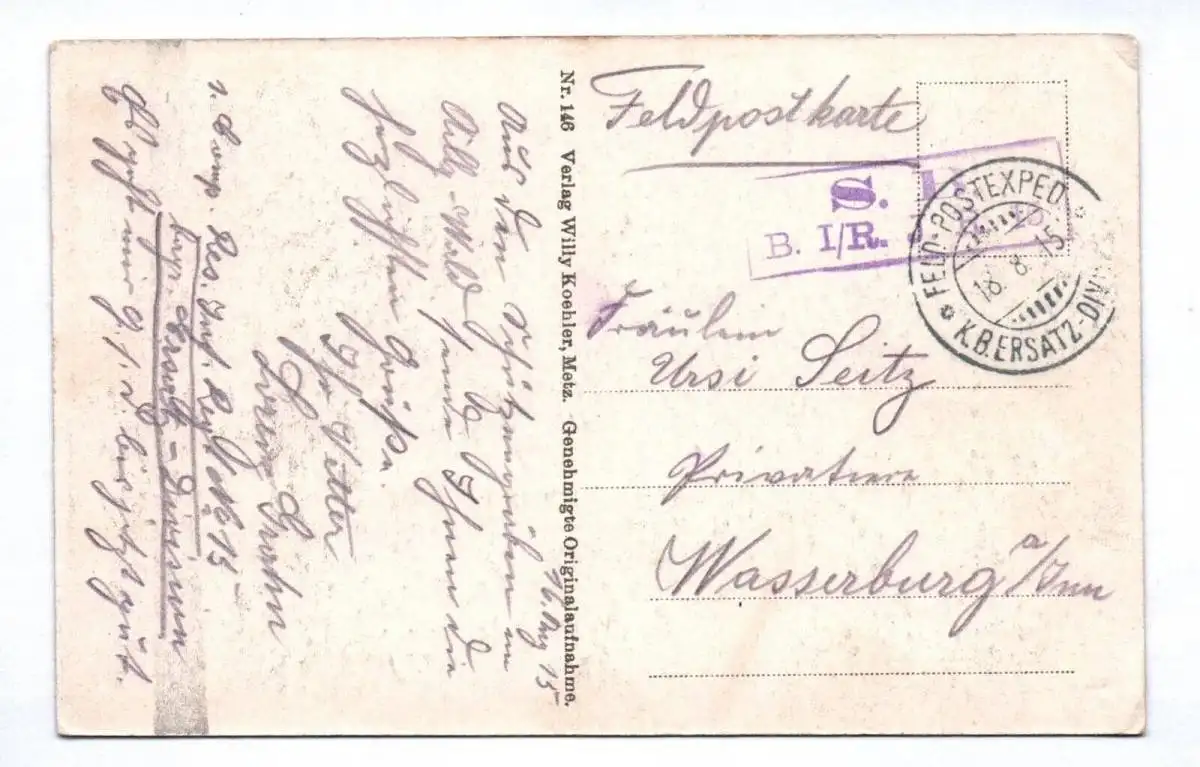 Feldpostkarte
S. B.
B. I/R.
FELD-POSTEXPED
18. 8. 15
K.B.ERSATZ-DIV
Fräulein
Ursi Seitz
Privatiere
Wasserburg a/Inn
Nr. 146 Verlag Willy Koehler, Metz. Genehmigte Originalaufnahme.
16. Aug 15
Aus den Schützengräben im
Ailly-Wald sende Ihnen die
herzlichsten Grüße.
Ihr Vetter
1. Comp. Res. Inf. Regt No 15
bayr. Ersatz-Division
geht mir g. s. D. bis jetzt gut.